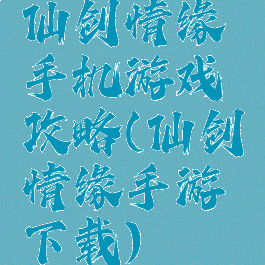 仙创情缘
手机游戏
攻略(仙创
情缘手游
下载)